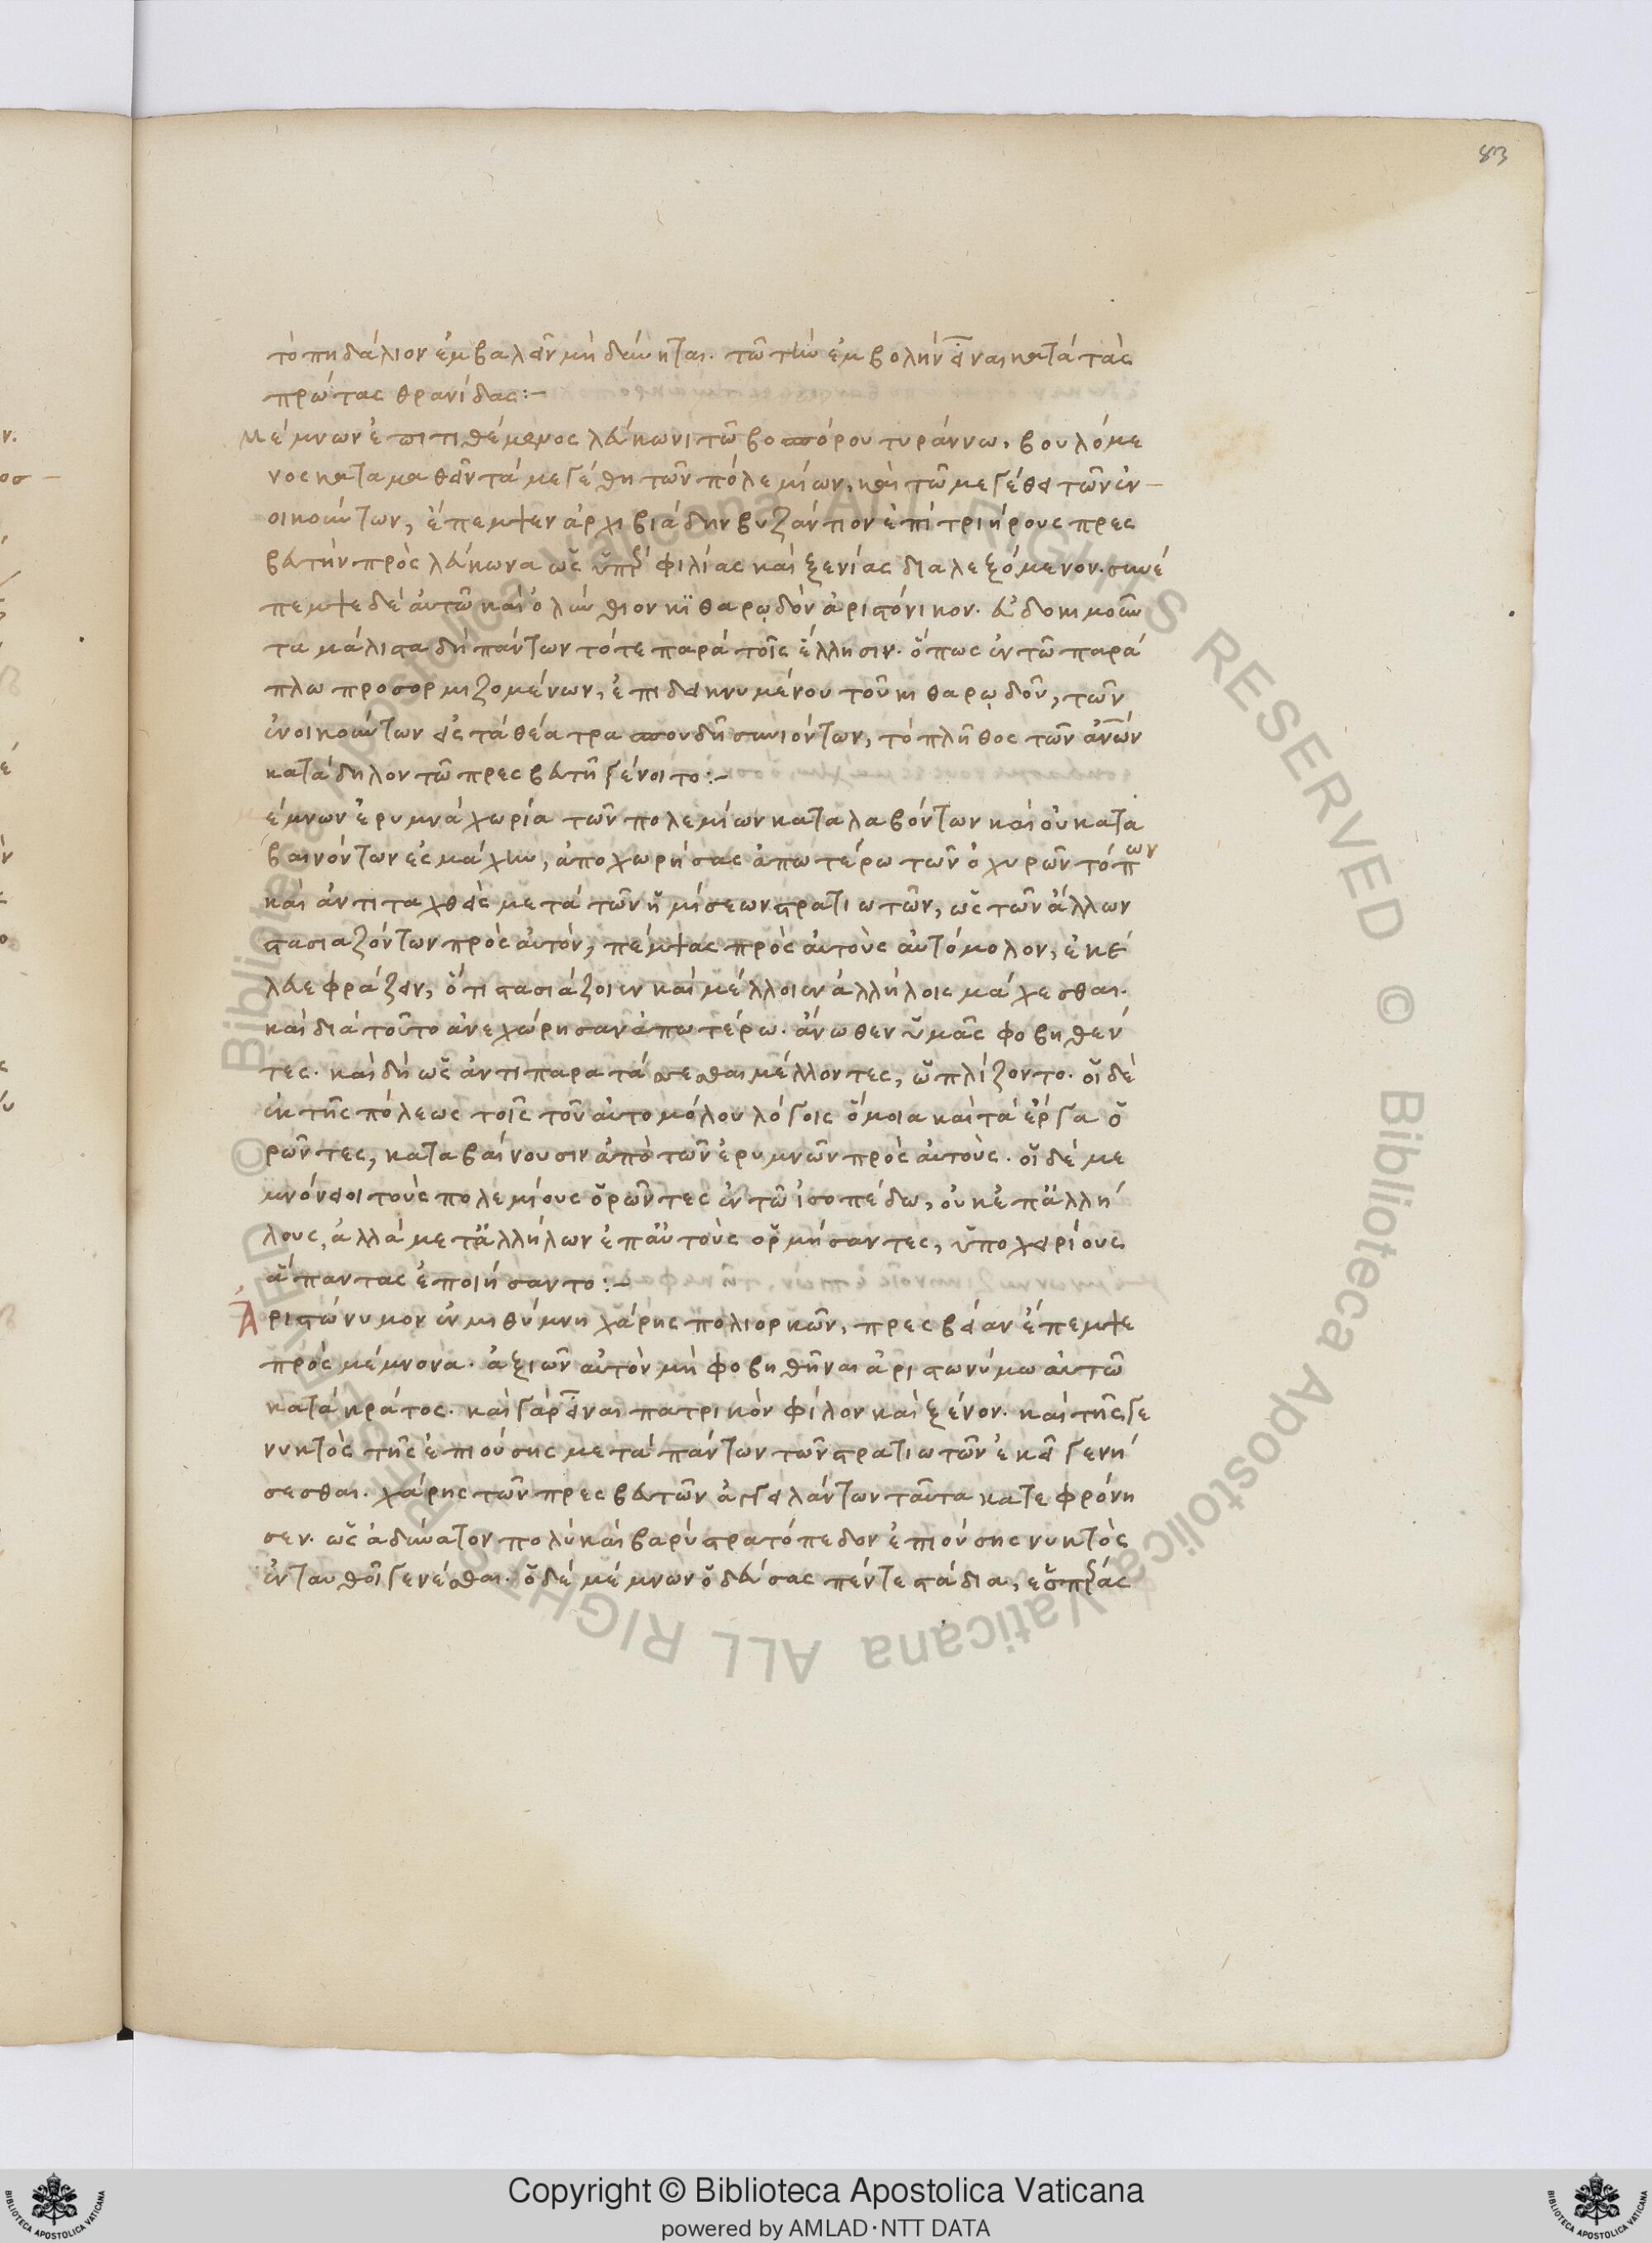 83
τὸ πηδάλιον ἐμβαλεῖν μὴ δύνηται. τῶ τὴν ἐμβολὴν εἶναι κατὰ τὰς
πρώτας θρανίδας:-
Μέμνων ἐπιτιθέμενος λεύκωνι τῶ βοσπόρου τυράννω, βουλόμε
νος καταμαθεῖν τὰ μεγέθη τῶν πολεμίων, καὶ τῶ μεγέθει τῶν ἐν
οικούντων, ἔπεμψεν ἀρχιβιάδην βυζάντιον ἐπὶ τριήρους πρεσ
βευτὴν πρὸς λεύκωνα ὡς ὑπὲρ φιλίας καὶ ξενίας διαλεξόμενον. συνέ
πεμψε δὲ αὐτῶ καὶ ὀλύνθιον κιθαρωδὸν ἀριστόνικον. εὐδοκιμοῦν
τα μάλιστα δὴ πάντων τότε παρὰ τοῖς ἕλλησιν. ὅπως ἐν τῶ παρά
πλω προσορμιζομένων, ἐπιδεικνυμένου τοῦ κιθαρωδοῦ, τῶν
ἐνοικούντων εἰς τὰ θέατρα σπουδῆ συνιόντων, τὸ πλῆθος τῶν ἀνῶν
κατάδηλον τῶ πρεσβευτῆ γένοιτο:-
έμνων ἐρυμνὰ χωρία τῶν πολεμίων καταλαβόντων καὶ οὐ κατα
βαινόντων ἐς μάχην, ἀποχωρήσας ἀπωτέρω τῶν ὀχυρῶν τόπων
καὶ ἀντιταχθεὶς μετὰ τῶν ἡμίσεων στρατιωτῶν, ὡς τῶν ἄλλων
στασιαζόντων πρὸς αὐτὸν, πέμψας πρὸς αὐτοὺς αὐτόμολον, ἐκέ
λευε φράζειν, ὅτι στασιάζοιεν καὶ μέλλοιεν ἀλλήλοις μάχεσθαι.
καὶ διὰ τοῦτο ἀνεχώρησαν ἀπωτέρω. ἄνωθεν ὑμᾶς φοβηθέν
τες. καὶ δὴ ὡς ἀντιπαρατάσσεσθαι μέλλοντες, ὡπλίζοντο. οἱ δὲ
ἐκ τῆς πόλεως τοῖς τοῦ αὐτομόλου λόγοις ὅμοια καὶ τὰ ἔργα ὁ
ρῶντες, καταβαίνουσιν ἀπὸ τῶν ἐρυμνῶν πρὸς αὐτοὺς. οἱ δὲ με
μνόνειοι τοὺς πολεμίους ὁρῶντες ἐν τῶ ἰσοπέδω, οὐκ ἐπ ἀλλή
λους, ἀλλὰ μετ ἀλλήλων ἐπ αὐτοὺς ὁρμήσαντες, ὑποχειρίους
ἅπαντας ἐποιήσαντο:-
Ἀριστώνυμον ἐν μηθύμνη χάρης πολιορκῶν, πρέσβειαν ἔπεμψε
πρὸς μέμνονα. ἀξιῶν αὐτὸν μὴ φοβηθῆναι ἀριστωνύμω αὐτῶ
κατὰ κράτος. καὶ γὰρ εἶναι πατρικὸν φίλον καὶ ξένον. καὶ τῆς γε
νυκτὸς τῆς ἐπιούσης μετὰ πάντων τῶν στρατιωτῶν ἐκεῖ γενή
σεσθαι. χάρης τῶν πρεσβευτῶν ἀγγειλάντων ταῦτα κατεφρόνη
σεν. ὡς ἀδύνατον πολὺ καὶ βαρὺ στρατόπεδον ἐπιούσης νυκτὸς
ἐνταυθοῖ γενέσθαι. ὁ δὲ μέμνων ὁδεύσας πέντε στάδια, ἑσπέρας